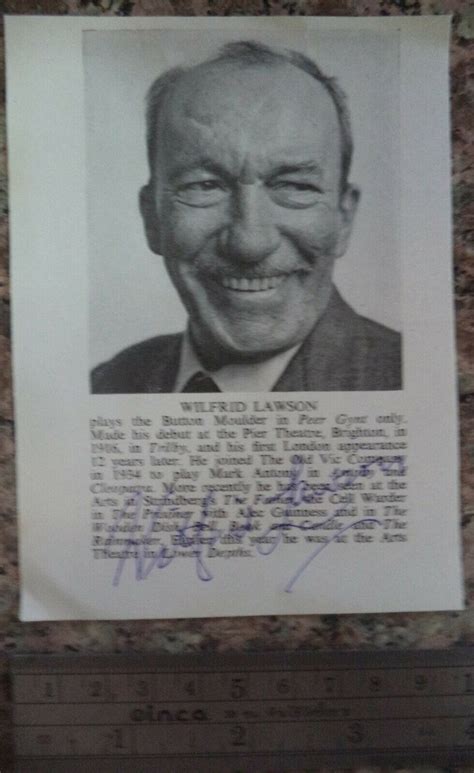 WILFRID LAWSON
plays the Button Moulder in Peer Gynt only.
Made his debut at the Pier Theatre, Brighton, in
1916, in Trilby, and his first London appearance
12 years later. He joined The Old Vic Company
in 1934 to play Mark Antony in Antony and
Cleopatra. More recently he has been seen at the
Arts in Strindberg's The Father, as Cell Warder
in The Prisoner with Alec Guinness and in The
Wooden Dish, Bell, Book and Candle and The
Rainmaker. Earlier this year he was at the Arts
Theatre in Lower Depths.
Wilfrid Lawson
1 2 3 4 5 6 7 8 9 1
einca
1 2 3 4